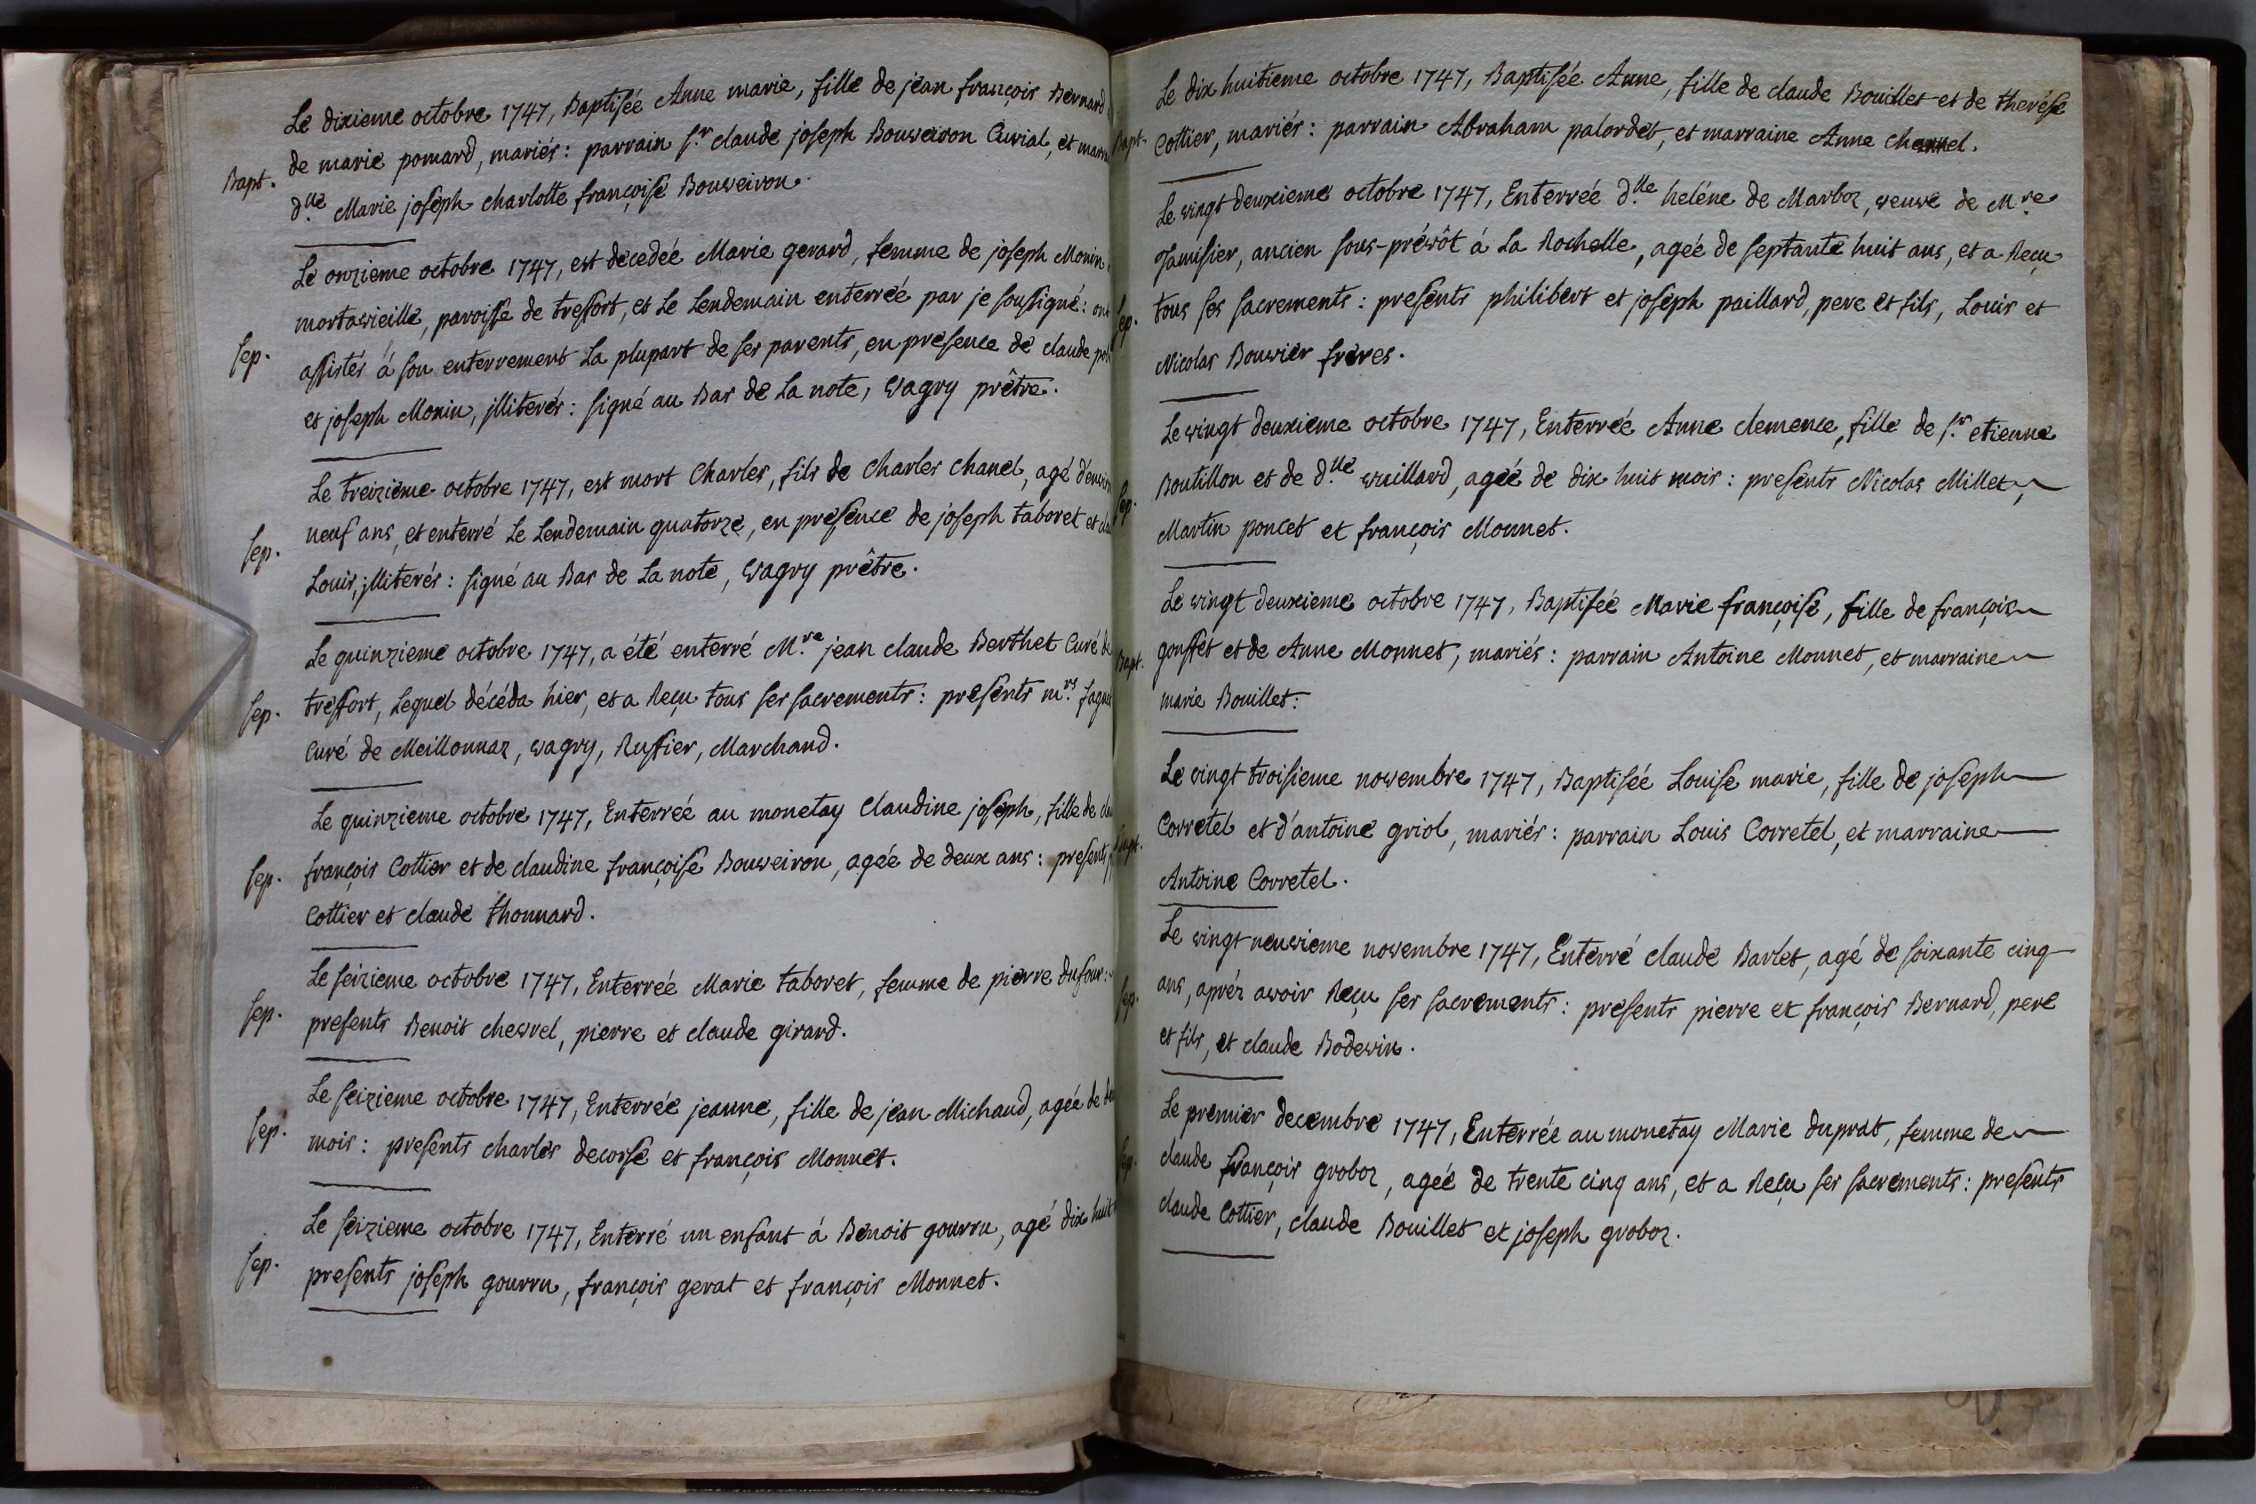 Le dixieme octobre 1747, Baptisée Anne marie, fille de jean françois Bernard
de marie pomard, mariés: parrain Sr. claude joseph Bouveiron Curial, et
Bapt.
dlle. Marie joseph charlotte françoise Bouveiron.
Le onzieme octobre 1747, est decedée Marie gerard, femme de joseph Monin
mortavieille, paroisse de tressort, et Le Lendemain enterrée par je soussigné: ont
Sep.
assistés á son enterrement La plupart de ses parents, en presence de claude
et joseph Monin, jlliterés: signé au Bas de La note, vagry prêtre.
Le treizieme octobre 1747, est mort Charles, fils de Charles Chanel, agé
Sep.
neuf ans, et enterré Le Lendemain quatorze, en presence de joseph taboret et
Louis, jlliterés: signé au Bas de La note, vagry prêtre.
Le quinzieme octobre 1747, a été enterré Mre. jean claude Berthet Curé de
Sep.
tressort, Lequel décéda hier, et a Reçu tous ses sacrements: presents mrs.
Curé de Meillonnaz, vagry, Ruffier, Marchand.
Le quinzieme octobre 1747, Enterrée au monetay Claudine joseph, fille de
Sep.
françois Cottier et de claudine françoise Bouveiron, agée de deux ans: presents
Cottier et claude thonnard.
Le seizieme octobre 1747, Enterrée Marie taboret, femme de pierre dufour:
Sep.
presents Benoit chevrel, pierre et claude girard.
Le seizieme octobre 1747, Enterrée jeanne, fille de jean Michaud, agée de
Sep.
mois: presents charles decorse et françois Monnet.
Le seizieme octobre 1747, Enterré un enfant á Benoit gourru, agé dix huit
Sep.
presents joseph gourru, françois gerat et françois Monnet.
Le dix huitieme octobre 1747, Baptisée Anne, fille de claude Bouillet et de therése
Bapt.
Cottier, mariés: parrain Abraham palordet, et marraine Anne Channel.
Le vingt deuxieme octobre 1747, Enterrée dlle. heléne de Marboz, veuve de Mre.
Tamisier, ancien sous-prévôt á La Rochelle, agée de septante huit ans, et a Reçu
Sep.
tous ses sacrements: presents philibert et joseph paillard, pere et fils, Louis et
Nicolas Bouvier freres.
Le vingt deuxieme octobre 1747, Enterrée Anne clemence, fille de Sr. etienne
Sep.
Boutillon et de dlle. vuillard, agée de dix huit mois: presents Nicolas Millet,
Martin poncet et françois Monnet.
Le vingt deuxieme octobre 1747, Baptisée Marie françoise, fille de françois
Bapt.
gouffet et de Anne Monnet, mariés: parrain Antoine Monnet, et marraine
marie Bouillet:
Le vingt troisieme novembre 1747, Baptisée Louise marie, fille de joseph
Bapt.
Corretel et d'antoine griol, mariés: parrain Louis Corretel, et marraine
Antoine Corretel.
Le vingt neuvieme novembre 1747, Enterré claude Barlet, agé de soixante cinq
Sep.
ans, apréz avoir Reçu ses sacrements: presents pierre et françois Bernard, pere
et fils, et claude Bodevin.
Le premier decembre 1747, Enterrée au monetay Marie duprat, femme de
Sep.
claude françois groboz, agée de trente cinq ans, et a Reçu ses sacrements: presents
claude Cottier, claude Bouillet et joseph groboz.